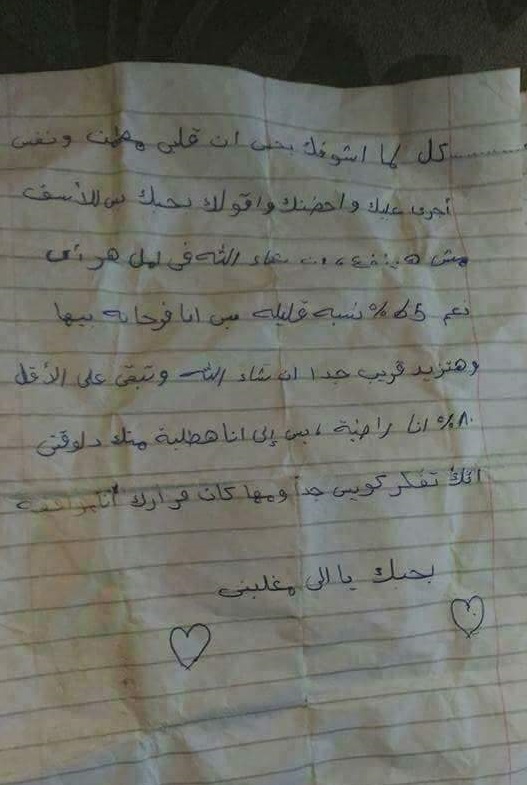 كل لما اشوفك بحس ان قلبى مطمن ونفسى
أجرى عليك واحضنك واقولك بحبك بس للأسف
مش هينفع شاء الله فى
نعم 65% نسبه قليله بس انا فرحانه بيها
وهتزيد قريب جدا ان شاء الله وتبقى على الأقل
٨٠% انا راضية ، بس إلى انا هطلبة منك دلوقتى
انك تفكر كويس جداً ومهما كان قرارك أنا موافقه
بحبك يا الى مغلبنى